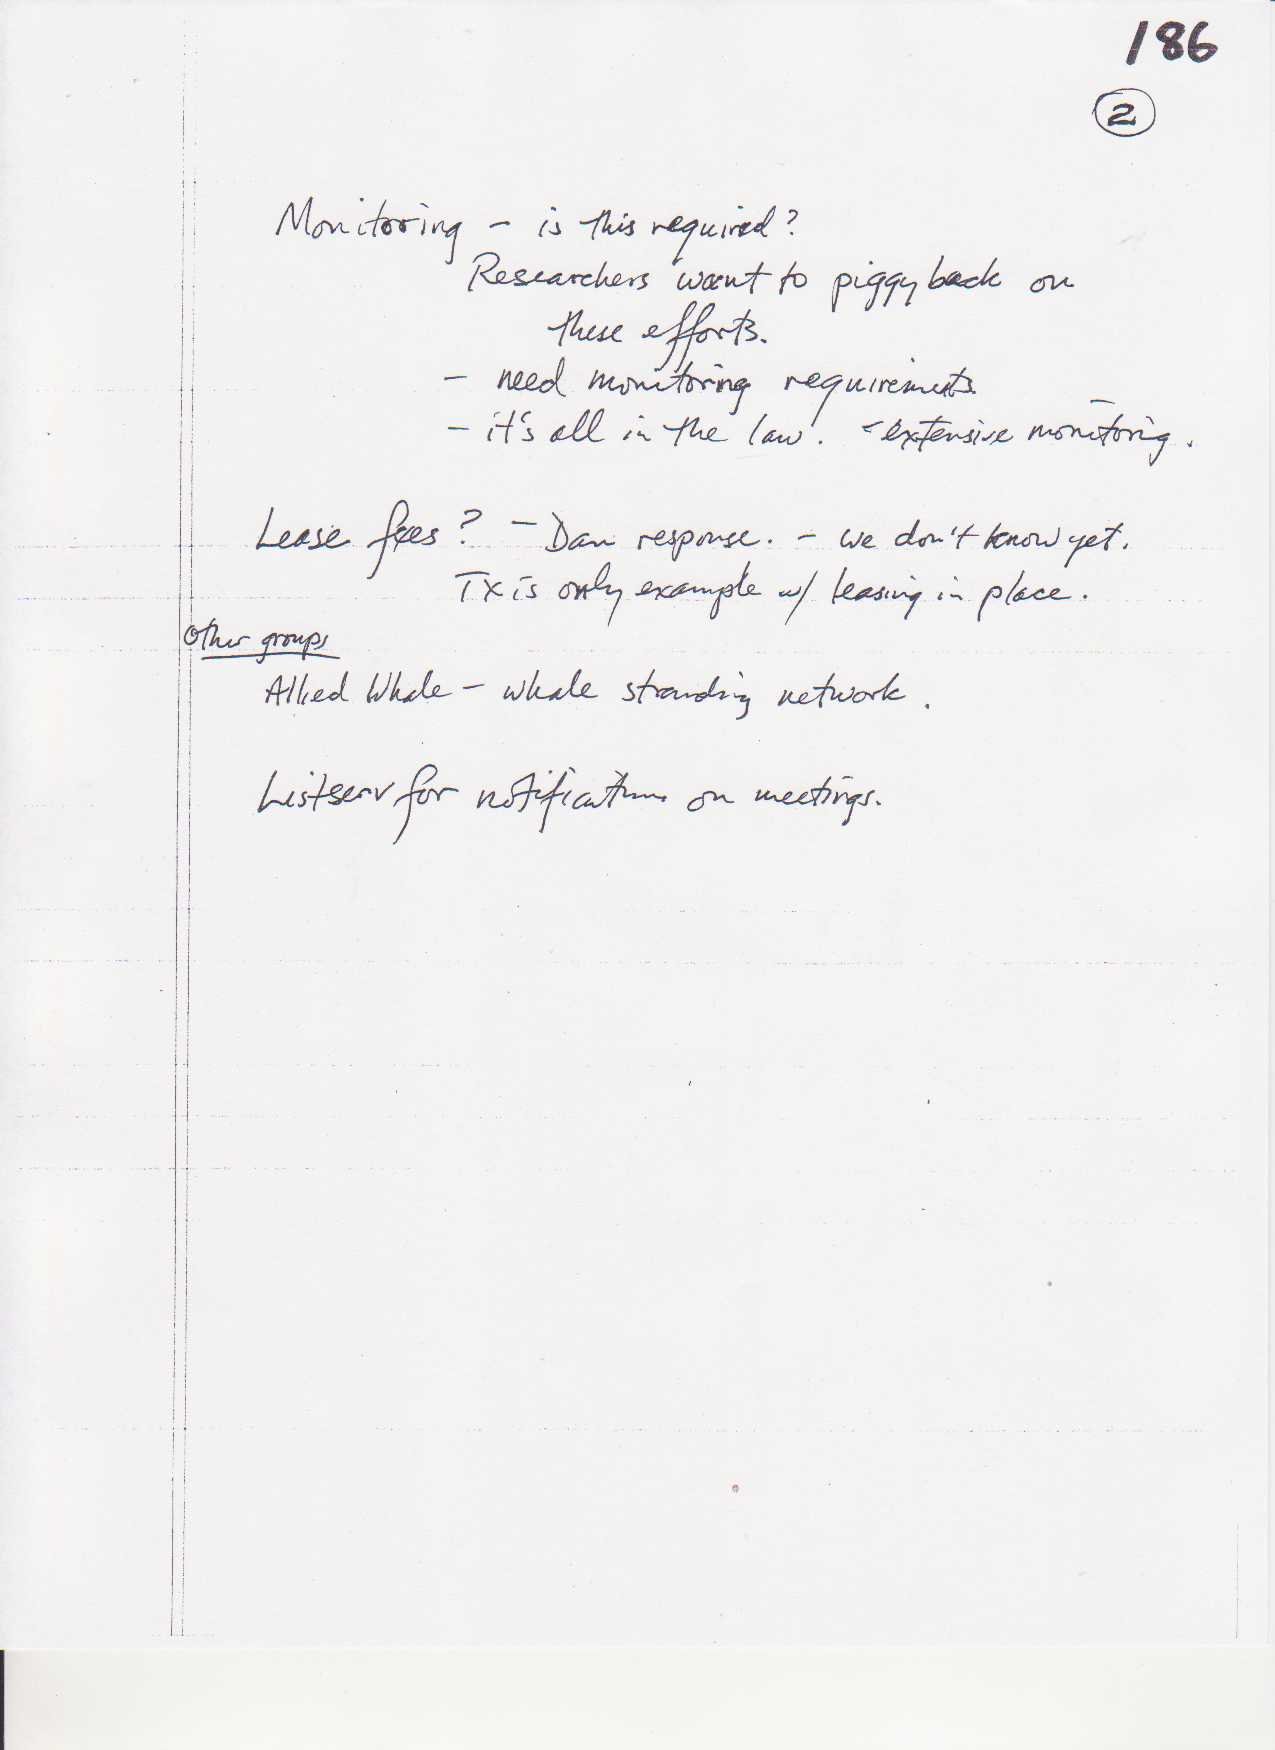 186
2
Monitoring - is this required?
Researchers want to piggyback on
these efforts.
- need monitoring requirements.
- it's all in the law. - extensive monitoring.
Lease fees? - Dan response. - we don't know yet.
TX is only example w/ leasing in place.
Other groups
Allied Whale - whale stranding network.
Listserv for notifications on meetings.